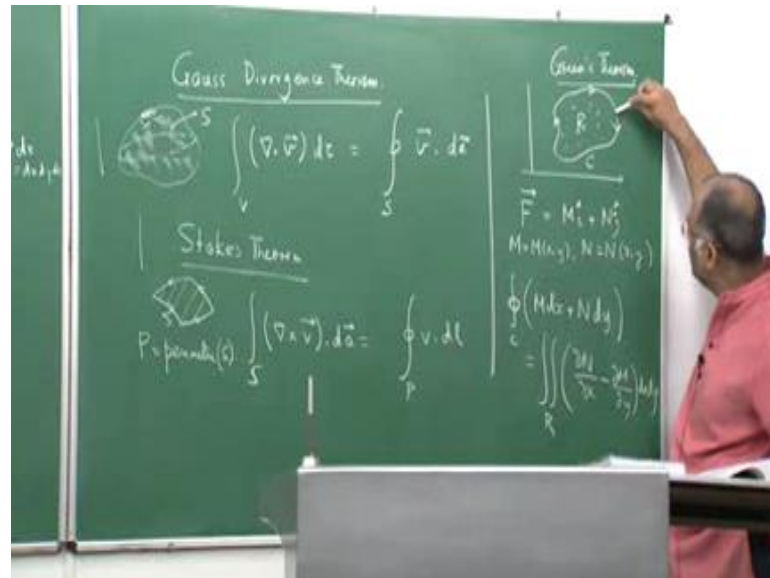 dx
= dx dy dz
Gauss Divergence Theorem.
S
∫_V (∇. v⃗) dτ = ∮_S v⃗. da⃗
Stokes Theorem
S
P = perimeter(S)
∫_S (∇ × v⃗). da⃗ = ∮_P v. dl
Green's Theorem
R
C
F⃗ = M î + N ĵ
M=M(x,y), N=N(x,y)
∮_C (M dx + N dy)
= ∬_R (∂N/∂x - ∂M/∂y) dx dy